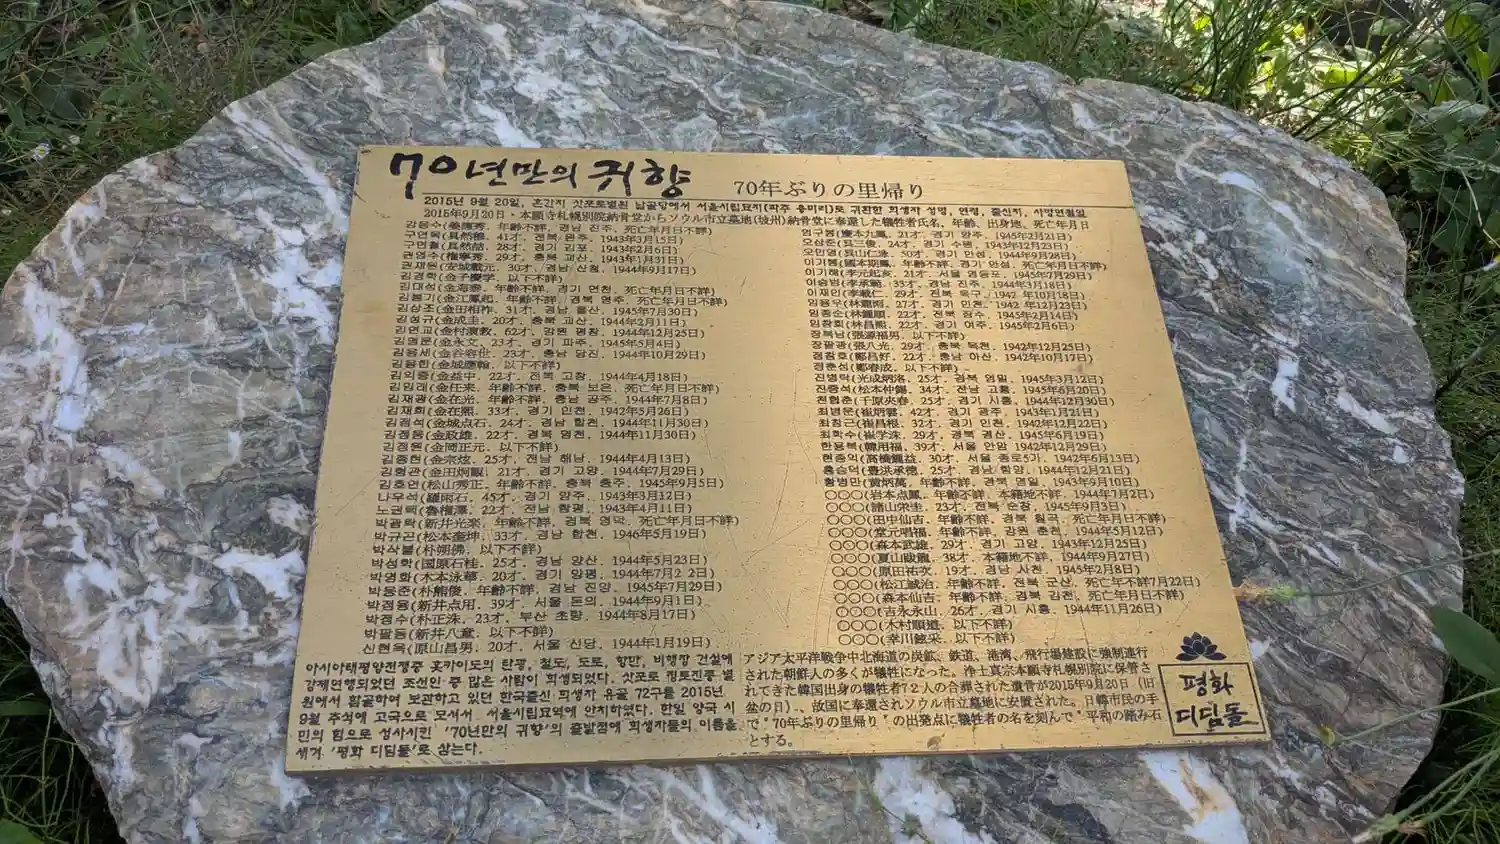 70년만의 귀향
70年ぶりの里帰り
2015년 9월 20일, 혼간지 삿포로별원 납골당에서 서울시립묘지(파주 용미리)로 귀환한 희생자 성명, 연령, 출신지, 사망연월일
2015年9月20日・本願寺札幌別院納骨堂からソウル市立墓地(坡州)納骨堂に奉還した犠牲者氏名、年齢、出身地、死亡年月日
강응수(姜應秀、年齢不詳、경남 진주、死亡年月日不詳)
구연목(具然穆、41才、전북 완주、1943年3月15日)
구연철(具然喆、28才、경기 김포、1943年2月6日)
권영수(権寧秀、29才、충북 괴산、1943年1月31日)
권재원(安城載元、30才、경남 산청、1944年9月17日)
김경학(金子慶学、以下不詳)
김대석(金海泰、年齢不詳、경기 연천、死亡年月日不詳)
김봉기(金江鳳起、年齢不詳、경북 영주、死亡年月日不詳)
김상조(金田相祚、31才、경남 울산、1945年7月30日)
김성규(金成圭、20才、충북 괴산、1944年2月11日)
김연교(金村演教、62才、강원 평창、1944年12月25日)
김영문(金永文、23才、경기 파주、1945年5月4日)
김용세(金谷容世、23才、충남 당진、1944年10月29日)
김응한(金城應翰、以下不詳)
김익중(金益中、22才、전북 고창、1944年4月18日)
김임래(金任来、年齢不詳、충북 보은、死亡年月日不詳)
김재광(金在光、年齢不詳、충남 공주、1944年7月8日)
김재희(金在熙、33才、경기 인천、1942年5月26日)
김점석(金城点石、24才、경남 합천、1944年11月30日)
김정웅(金政雄、22才、경북 영천、1944年11月30日)
김정원(金岡正元、以下不詳)
김종현(金宗炫、25才、전남 해남、1944年4月13日)
김형관(金田炯觀、21才、경기 고양、1944年7月29日)
김호언(松山秀正、年齢不詳、충북 충주、1945年9月5日)
나우석(羅雨石、45才、경기 양주、1943年3月12日)
노권택(魯權澤、22才、전남 함평、1943年4月11日)
박광락(新井光楽、年齢不詳、경북 영덕、死亡年月日不詳)
박규곤(松本奎坤、33才、경남 합천、1946年5月19日)
박삭불(朴朔佛、以下不詳)
박석학(国原石桂、25才、경남 양산、1944年5月23日)
박영화(木本泳華、20才、경기 양평、1944年7月22日)
박웅준(朴熊俊、年齢不詳、경남 진양、1945年7月29日)
박점용(新井点用、39才、서울 돈의、1944年9月1日)
박정수(朴正洙、23才、부산 초량、1944年8月17日)
박팔동(新井八童、以下不詳)
신현옥(原山昌男、20才、서울 신당、1944年1月19日)
엄구봉(慶本九鳳、21才、경기 양주、1945年2月21日)
오삼준(呉三俊、24才、경기 수원、1943年12月23日)
오인영(呉山仁泳、50才、경기 안성、1944年9月28日)
이기봉(國本期鳳、年齢不詳、경기 안성、死亡年月日不詳)
이기해(李元起亥、21才、서울 영등포、1945年7月29日)
이승범(李承範、33才、경남 진주、1944年3月18日)
이재인(李載仁、29才、전북 옥구、1942年10月18日)
임용우(林龍雨、27才、경기 인천、1942年12月23日)
임종순(林鍾順、22才、전북 장수、1945年2月14日)
임창희(林昌熙、22才、경기 여주、1945年2月6日)
장복남(張源福男、以下不詳)
장팔광(張八光、29才、충북 옥천、1942年12月25日)
정창호(鄭昌好、22才、충남 아산、1942年10月17日)
정춘성(鄭春成、以下不詳)
진병락(光成炳洛、25才、경북 영일、1945年3月12日)
진중석(松本仲錫、34才、전남 고흥、1945年6月20日)
천협춘(千原夾春、25才、경기 시흥、1944年12月30日)
최병운(崔炳雲、42才、경기 광주、1943年1月21日)
최창근(崔昌根、32才、경기 인천、1942年12月22日)
최학수(崔学洙、29才、경북 경산、1945年6月19日)
한용복(韓用福、39才、서울 안암、1942年12月29日)
현종익(高橋鍾益、30才、서울 종로5가、1942年6月13日)
홍승덕(豊洪承徳、25才、경남 함양、1944年12月21日)
황병만(黄炳萬、年齢不詳、경북 영일、1943年9月10日)
○○○(岩本点鳳、年齢不詳、本籍地不詳、1944年7月2日)
○○○(諸山栄圭、23才、전북 순창、1945年9月3日)
○○○(田中仙吉、年齢不詳、경북 칠곡、死亡年月日不詳)
○○○(堂元唱福、年齢不詳、강원 춘천、1944年5月12日)
○○○(森本武雄、29才、경기 고양、1943年12月25日)
○○○(夏山駿龍、38才、本籍地不詳、1944年9月27日)
○○○(原田祐次、19才、경남 사천、1945年2月8日)
○○○(松江誠治、年齢不詳、전북 군산、死亡年不詳7月22日)
○○○(森本仙吉、年齢不詳、경북 김천、死亡年月日不詳)
○○○(吉永永山、26才、경기 시흥、1944年11月26日)
○○○(木村順道、以下不詳)
○○○(幸川鉉采、以下不詳)
아시아태평양전쟁중 홋카이도의 탄광, 철도, 도로, 항만, 비행장 건설에
강제연행되었던 조선인 중 많은 사람이 희생되었다. 삿포로 정토진종 별
원에서 합골하여 보관하고 있던 한국출신 희생자 유골 72구를 2015년
9월 추석에 고국으로 모셔서 서울시립묘역에 안치하였다. 한일 양국 시
민의 힘으로 성사시킨 '70년만의 귀향'의 출발점에 희생자들의 이름을
새겨 '평화 디딤돌'로 삼는다.
アジア太平洋戦争中北海道の炭鉱、鉄道、港湾、飛行場建設に強制連行
された朝鮮人の多くが犠牲になった。浄土真宗本願寺札幌別院に保管さ
れてきた韓国出身の犠牲者72人の合葬された遺骨が2015年9月20日(旧
盆の日)、故国に奉還されソウル市立墓地に安置された。日韓市民の手
で"70年ぶりの里帰り"の出発点に犠牲者の名を刻んで"平和の踏み石"
とする。
평화
디딤돌